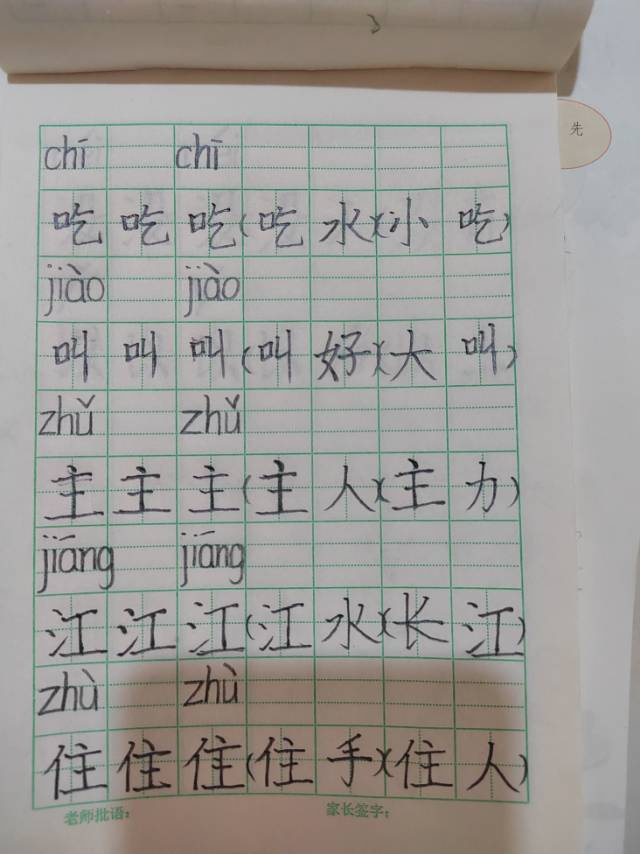 先
chī chī
吃 吃 吃(吃 水)(小 吃)
jiào jiào
叫 叫 叫(叫 好)(大 叫)
zhǔ zhǔ
主 主 主(主 人)(主 力)
jiāng jiāng
江 江 江(江 水)(长 江)
zhù zhù
住 住 住(住 手)(住 人)
老师批语： 家长签字：